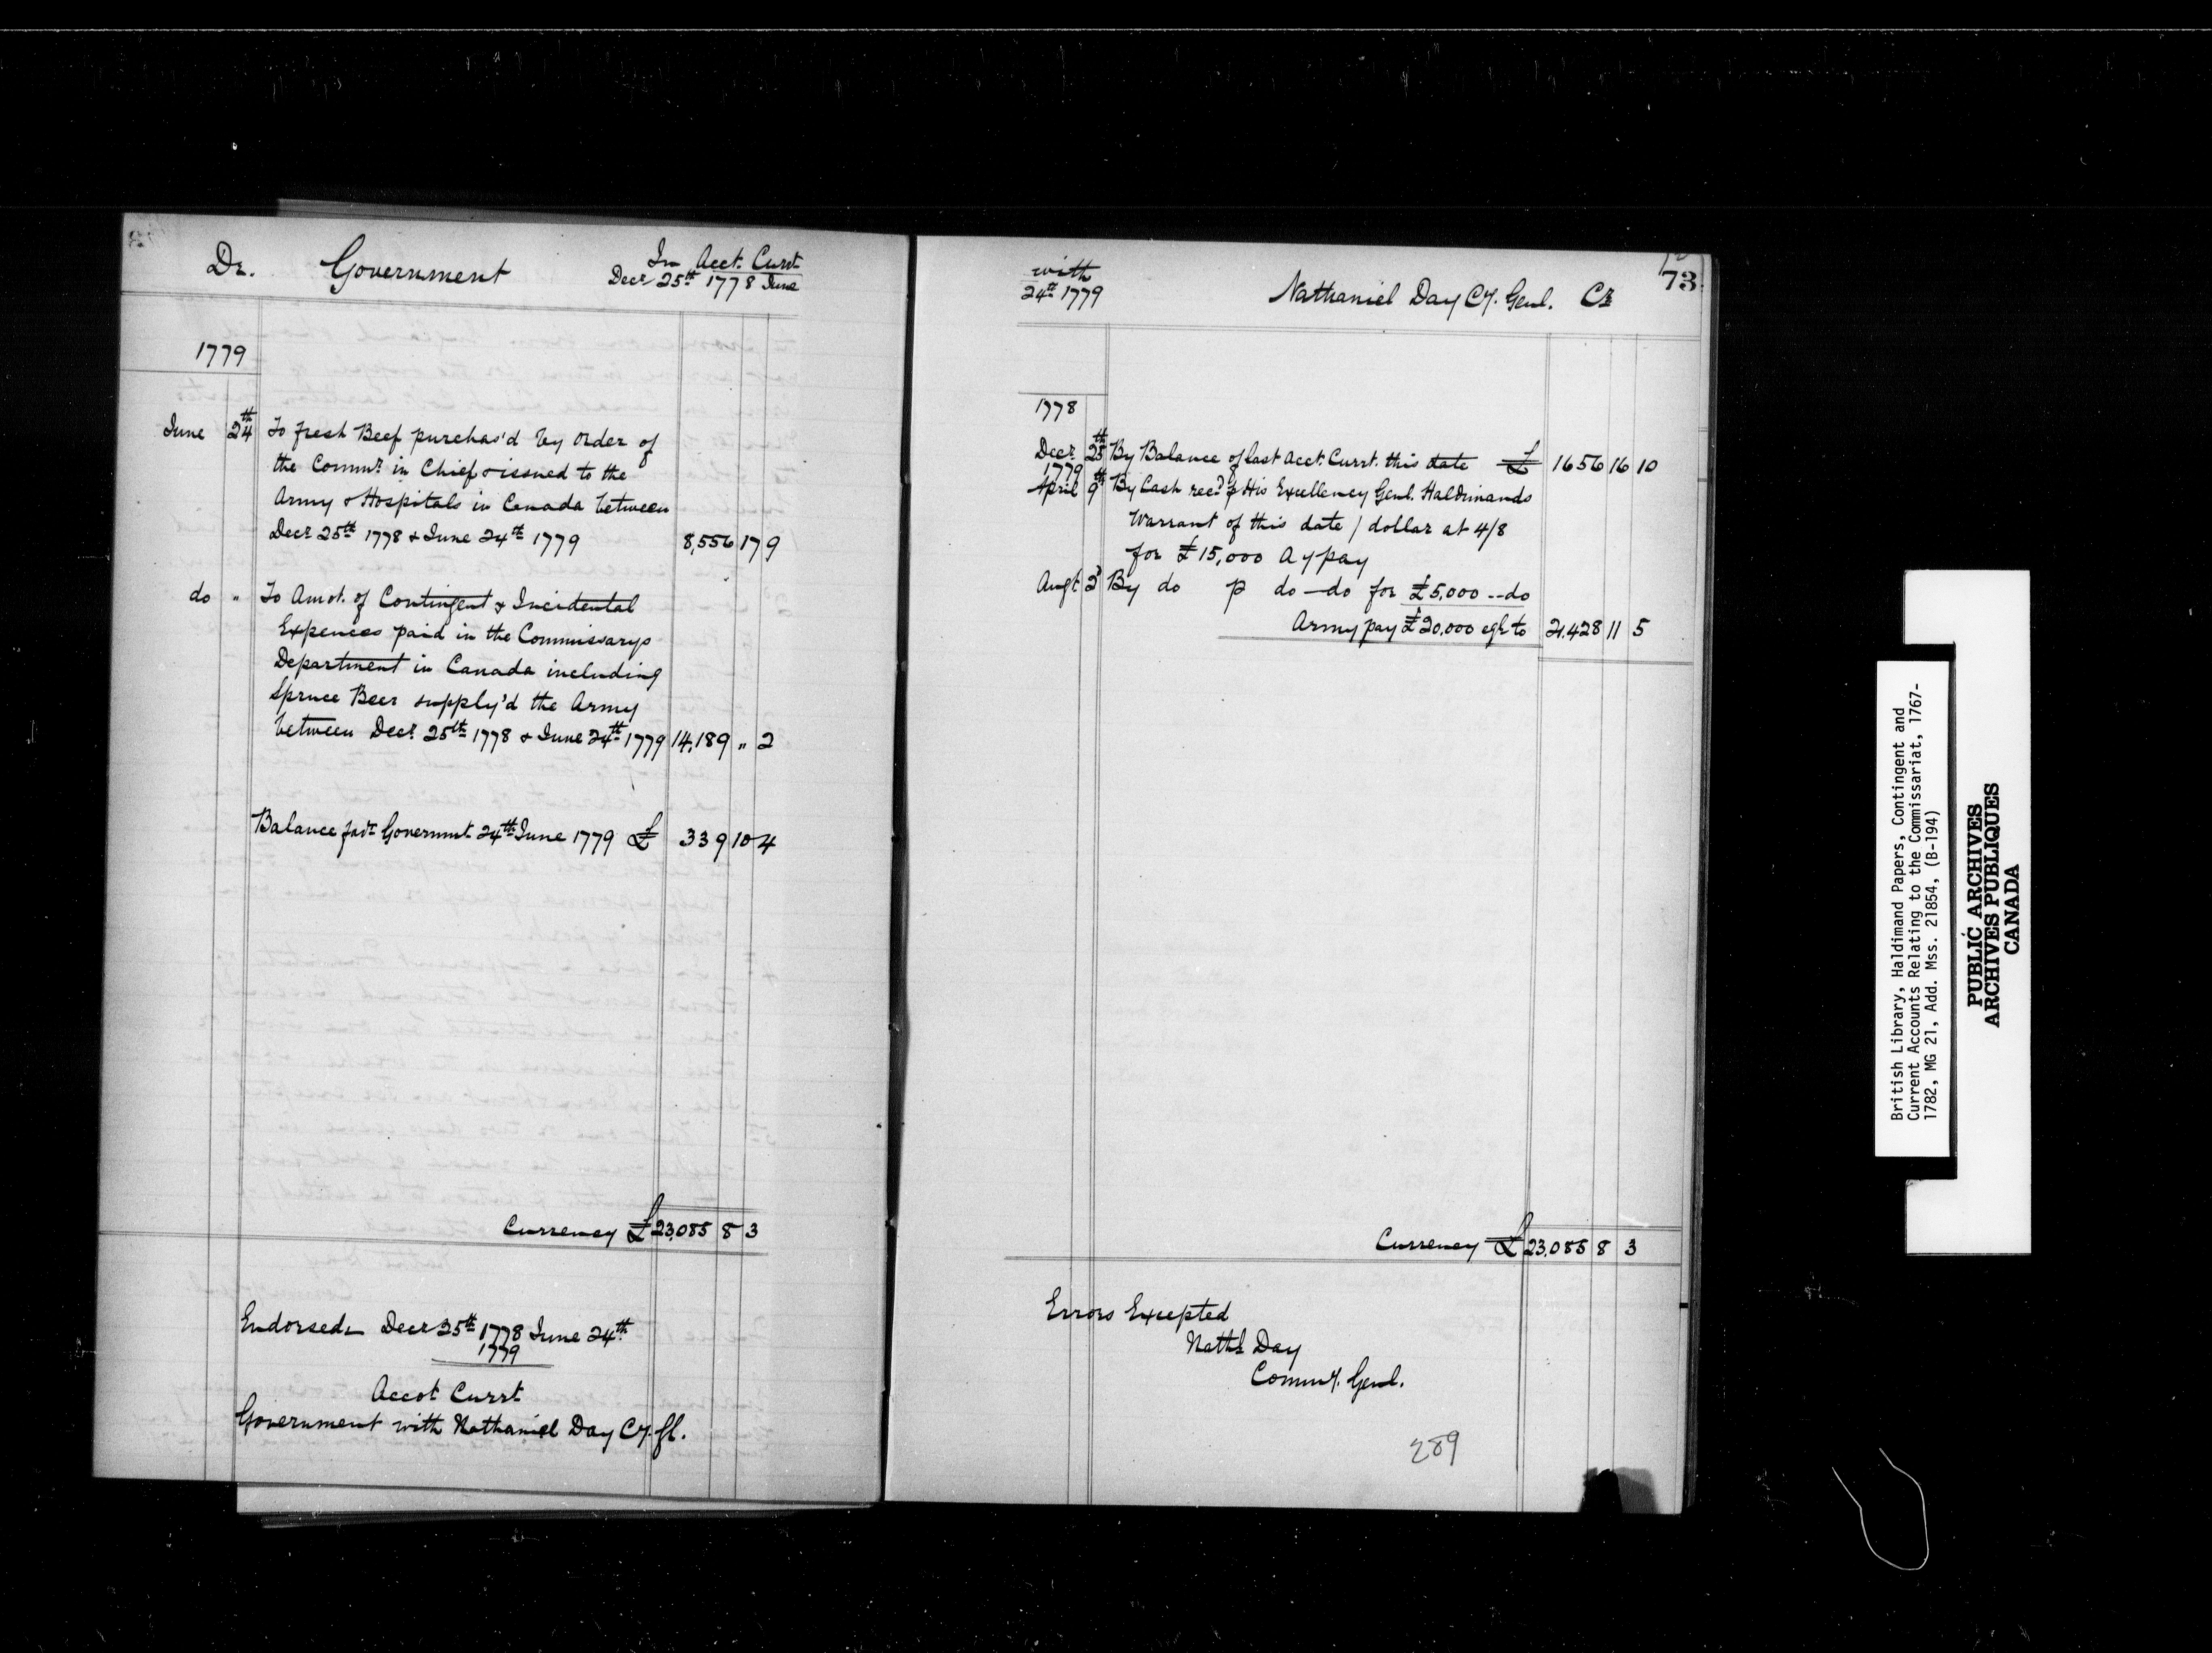 Dr. Government In Acct. Currt
Decr 25th 1778 June
1779
June 24th To fresh Beef purchas'd by order of
the Commr in Chief & issued to the
Army & Hospitals in Canada between
Decr 25th 1778 & June 24th 1779 8,556 17 9
do " To Amot. of Contingent & Incidental
Expences paid in the Commissarys
Department in Canada including
Spruce Beer supply'd the Army
between Decr 25th 1778 & June 24th 1779 14,189 " 2
Balance favr Governmt 24th June 1779 £ 339 10 4
Currency £ 23,085 8 3
Endorsed Decr 25th 1778 June 24th
1779
Accot Currt
Government with Nathaniel Day Cy. Gl.
with
24th 1779
Nathaniel Day Cy. Genl. Cr
73
1778
Decr 25th By Balance of last Acct. Currt. this date £ 1656 16 10
1779
April 9th By Cash recd p His Excellency Genl. Haldimands
Warrant of this date / dollar at 4/8
for £15,000 Ay pay
Augt 2d By do p do — do for £5,000 -- do
Army pay £20,000 eql to 21,428 11 5
Currency £ 23,085 8 3
Errors Excepted
Nathl Day
Commy. Genl.
289
British Library, Haldimand Papers, Contingent and
Current Accounts Relating to the Commissariat, 1767-
1782, MG 21, Add. Mss. 21854, (B-194)
PUBLIC ARCHIVES
ARCHIVES PUBLIQUES
CANADA